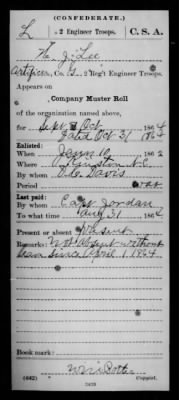 (CONFEDERATE.)
L 2 Engineer Troops. C. S. A.
J. Lee
Artificer, Co. G., 2 Reg't Engineer Troops.
Appears on
Company Muster Roll
of the organization named above,
for Sept & Oct, 1864
dated Oct 31 1864
Enlisted:
When 186
Where N.C.
By whom Davis
Period War
Last paid:
By whom Capt Jordan
To what time Aug 31, 1864
Present or absent Present
Remarks: Not absent without
leave since April 1, 1864
Book mark:
(642) Copyist.